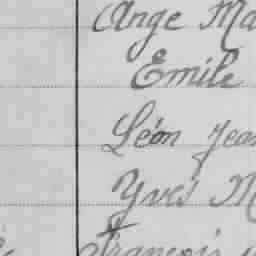 Ange Ma
Emile
Léon Jean
Yves M
François